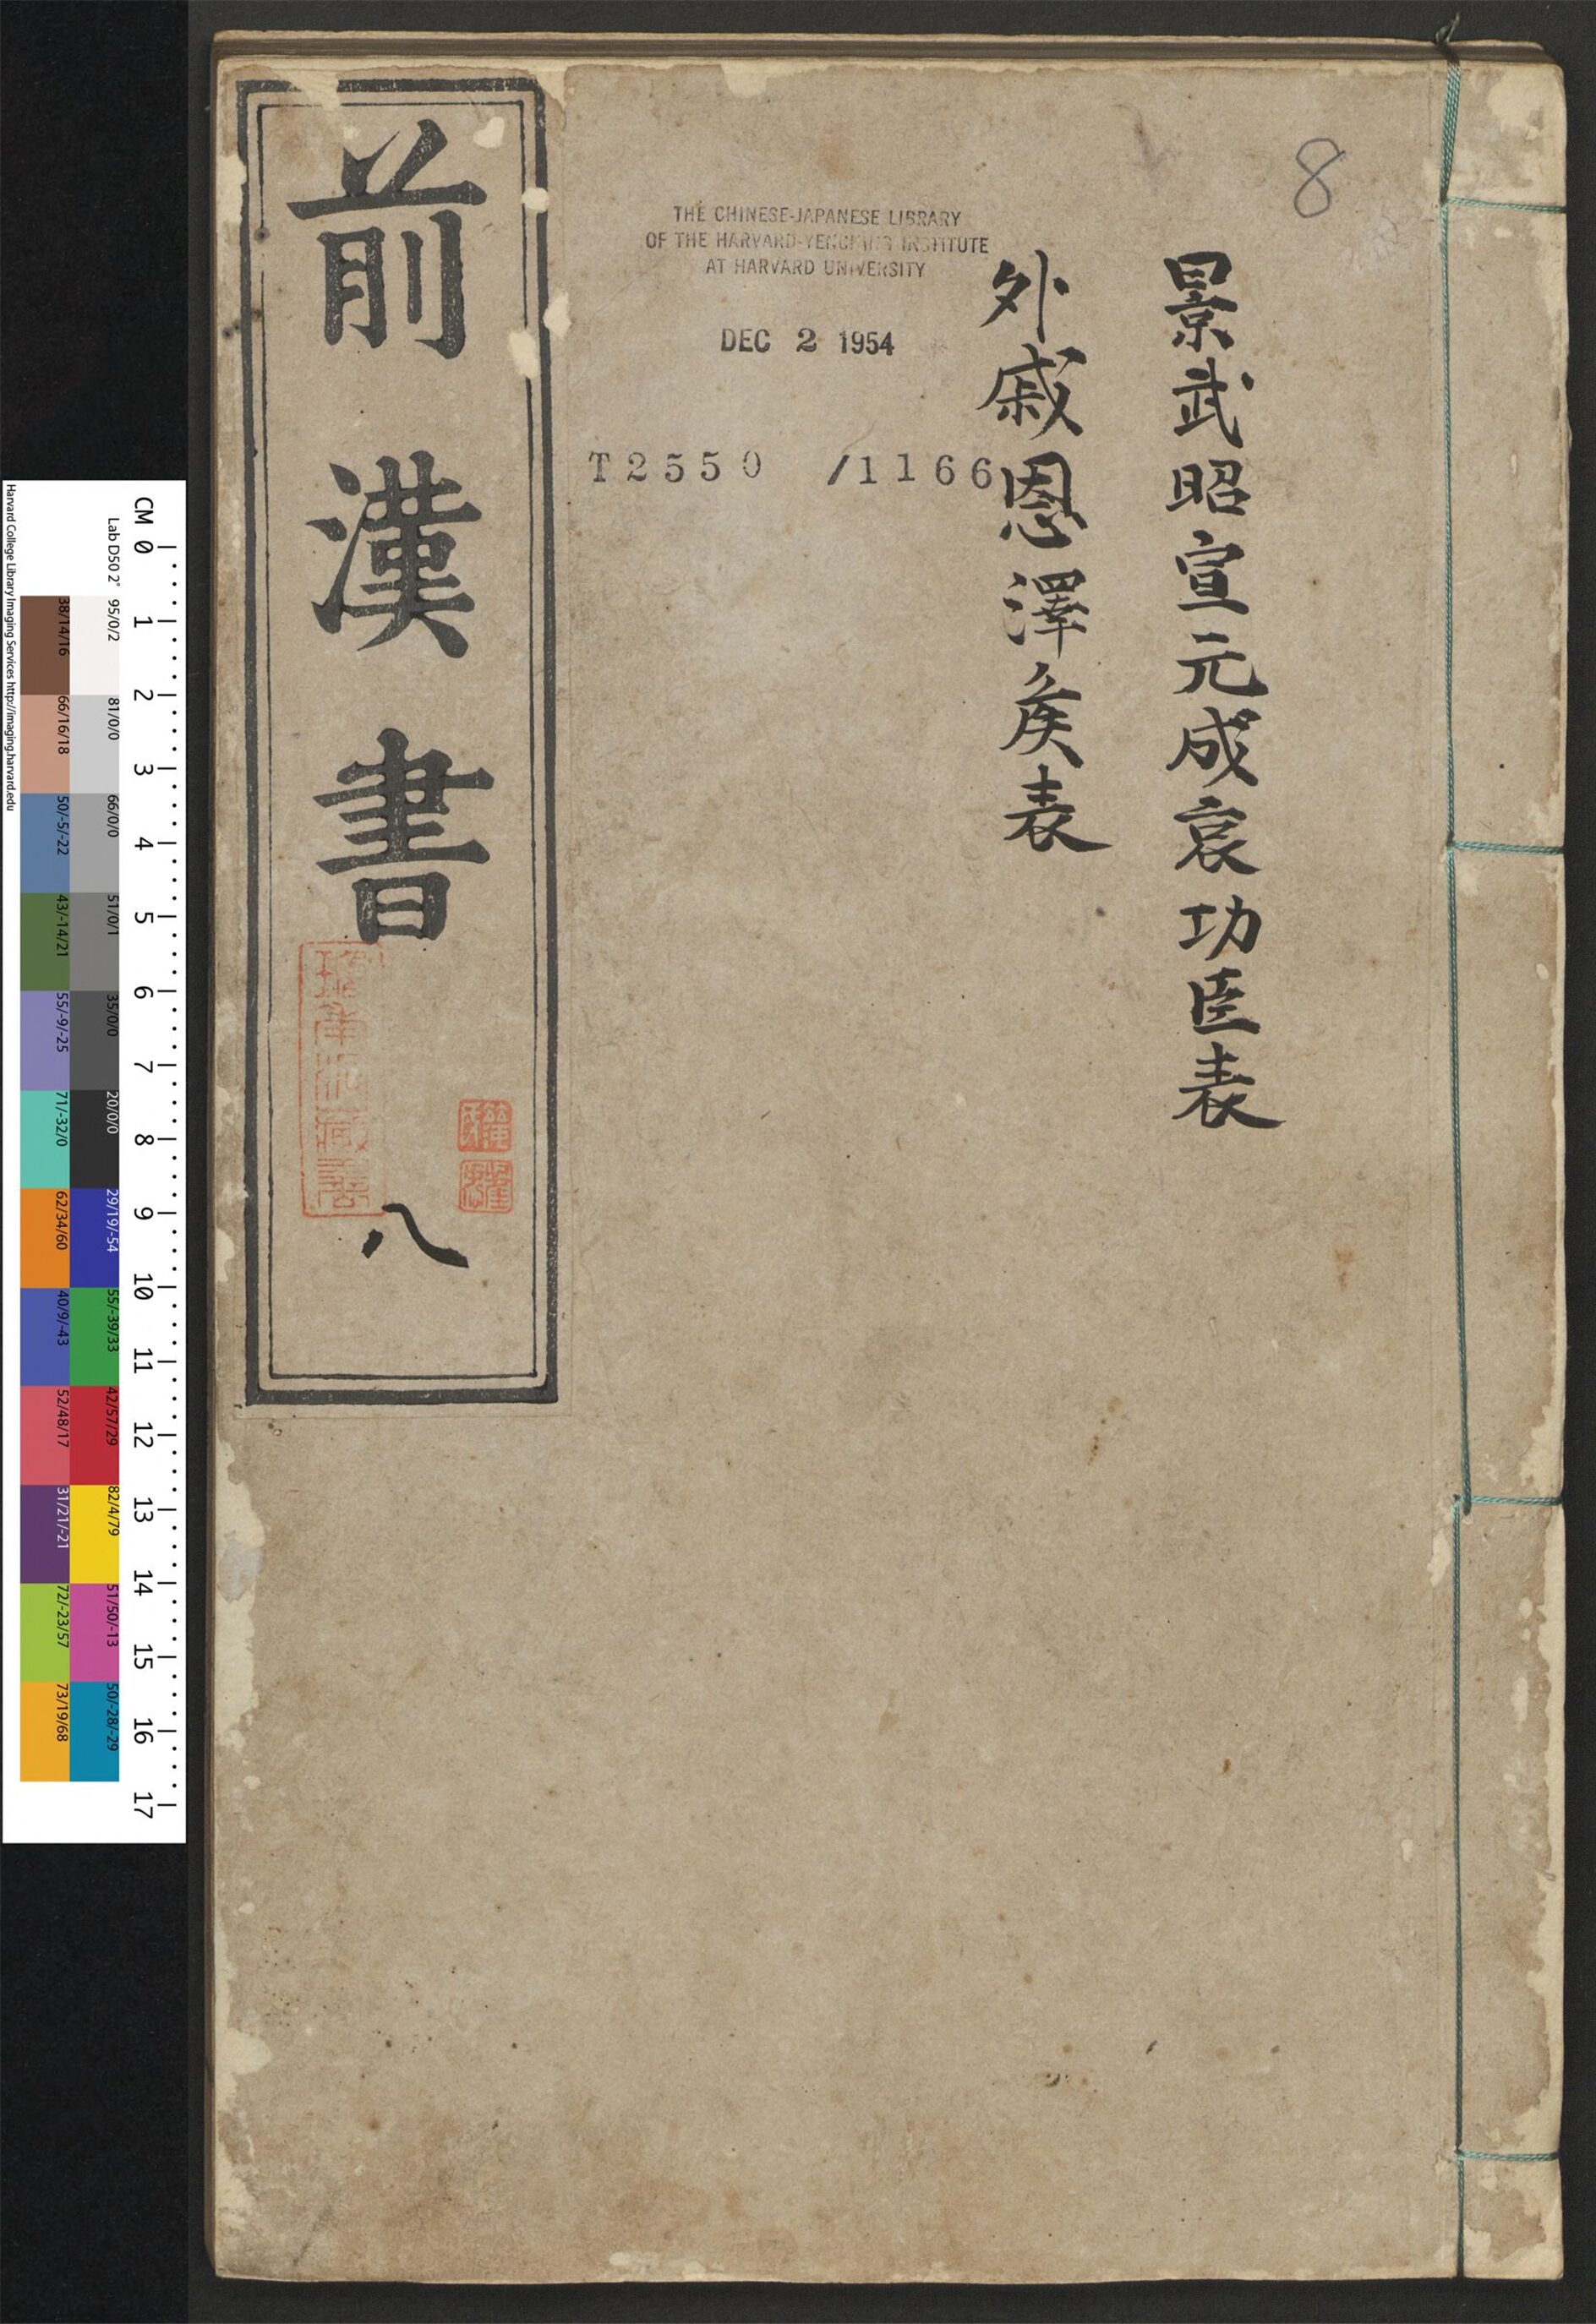 8
景武昭宣元成哀功臣表
外戚恩澤矦表
THE CHINESE-JAPANESE LIBRARY
OF THE HARVARD-YENCHING INSTITUTE
AT HARVARD UNIVERSITY
DEC 2 1954
T2550 /1166
前漢書
八
CM 0 1 2 3 4 5 6 7 8 9 10 11 12 13 14 15 16 17
Lab D50 2°
95/0/2 81/0/0 66/0/0 51/0/1 35/0/0 20/0/0 29/19/-54 55/-39/33 42/57/29 82/4/79 51/50/-13 50/-28/-29
38/14/16 66/16/18 50/-5/-22 43/-14/21 55/-9/-25 71/-32/0 62/34/60 40/9/-43 52/48/17 31/21/-21 72/-23/57 73/19/68
Harvard College Library Imaging Services http://imaging.harvard.edu